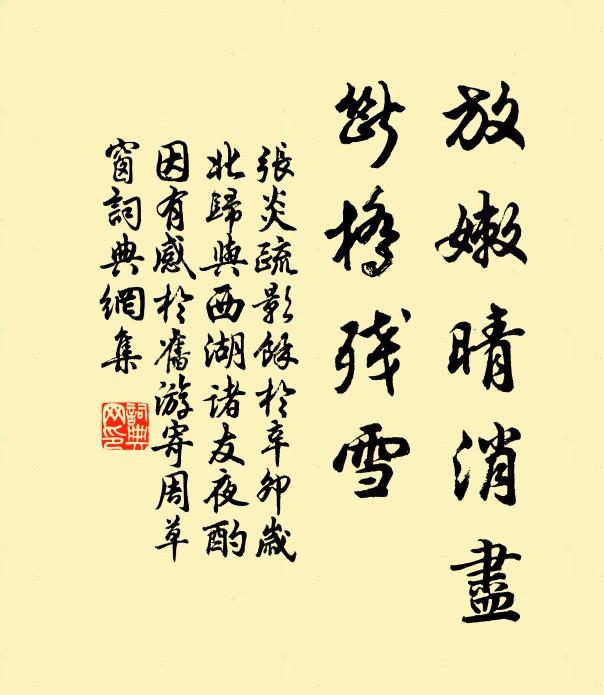 放嫩晴消盡
斷橋殘雪
張炎疏影餘於辛卯歲
北歸與西湖諸友夜酌
因有感於舊游寄周草
窗詞典網集
詞典
网印